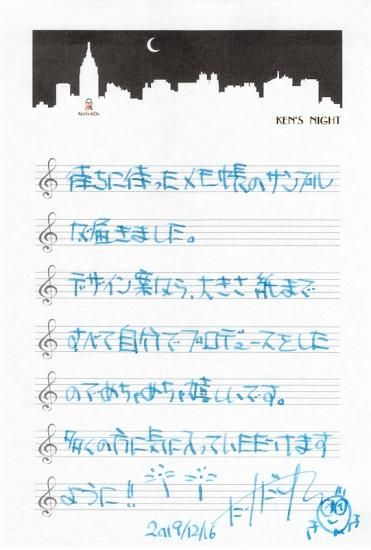 KEN'S NIGHT
待ちに待ったメモ帳のサンプル
が届きました。
デザイン案から、大きさ 紙まで
すべて自分でプロデュースをした
のでめちゃめちゃ嬉しいです。
多くの方に気に入っていただけます
ように!!
2019/12/16